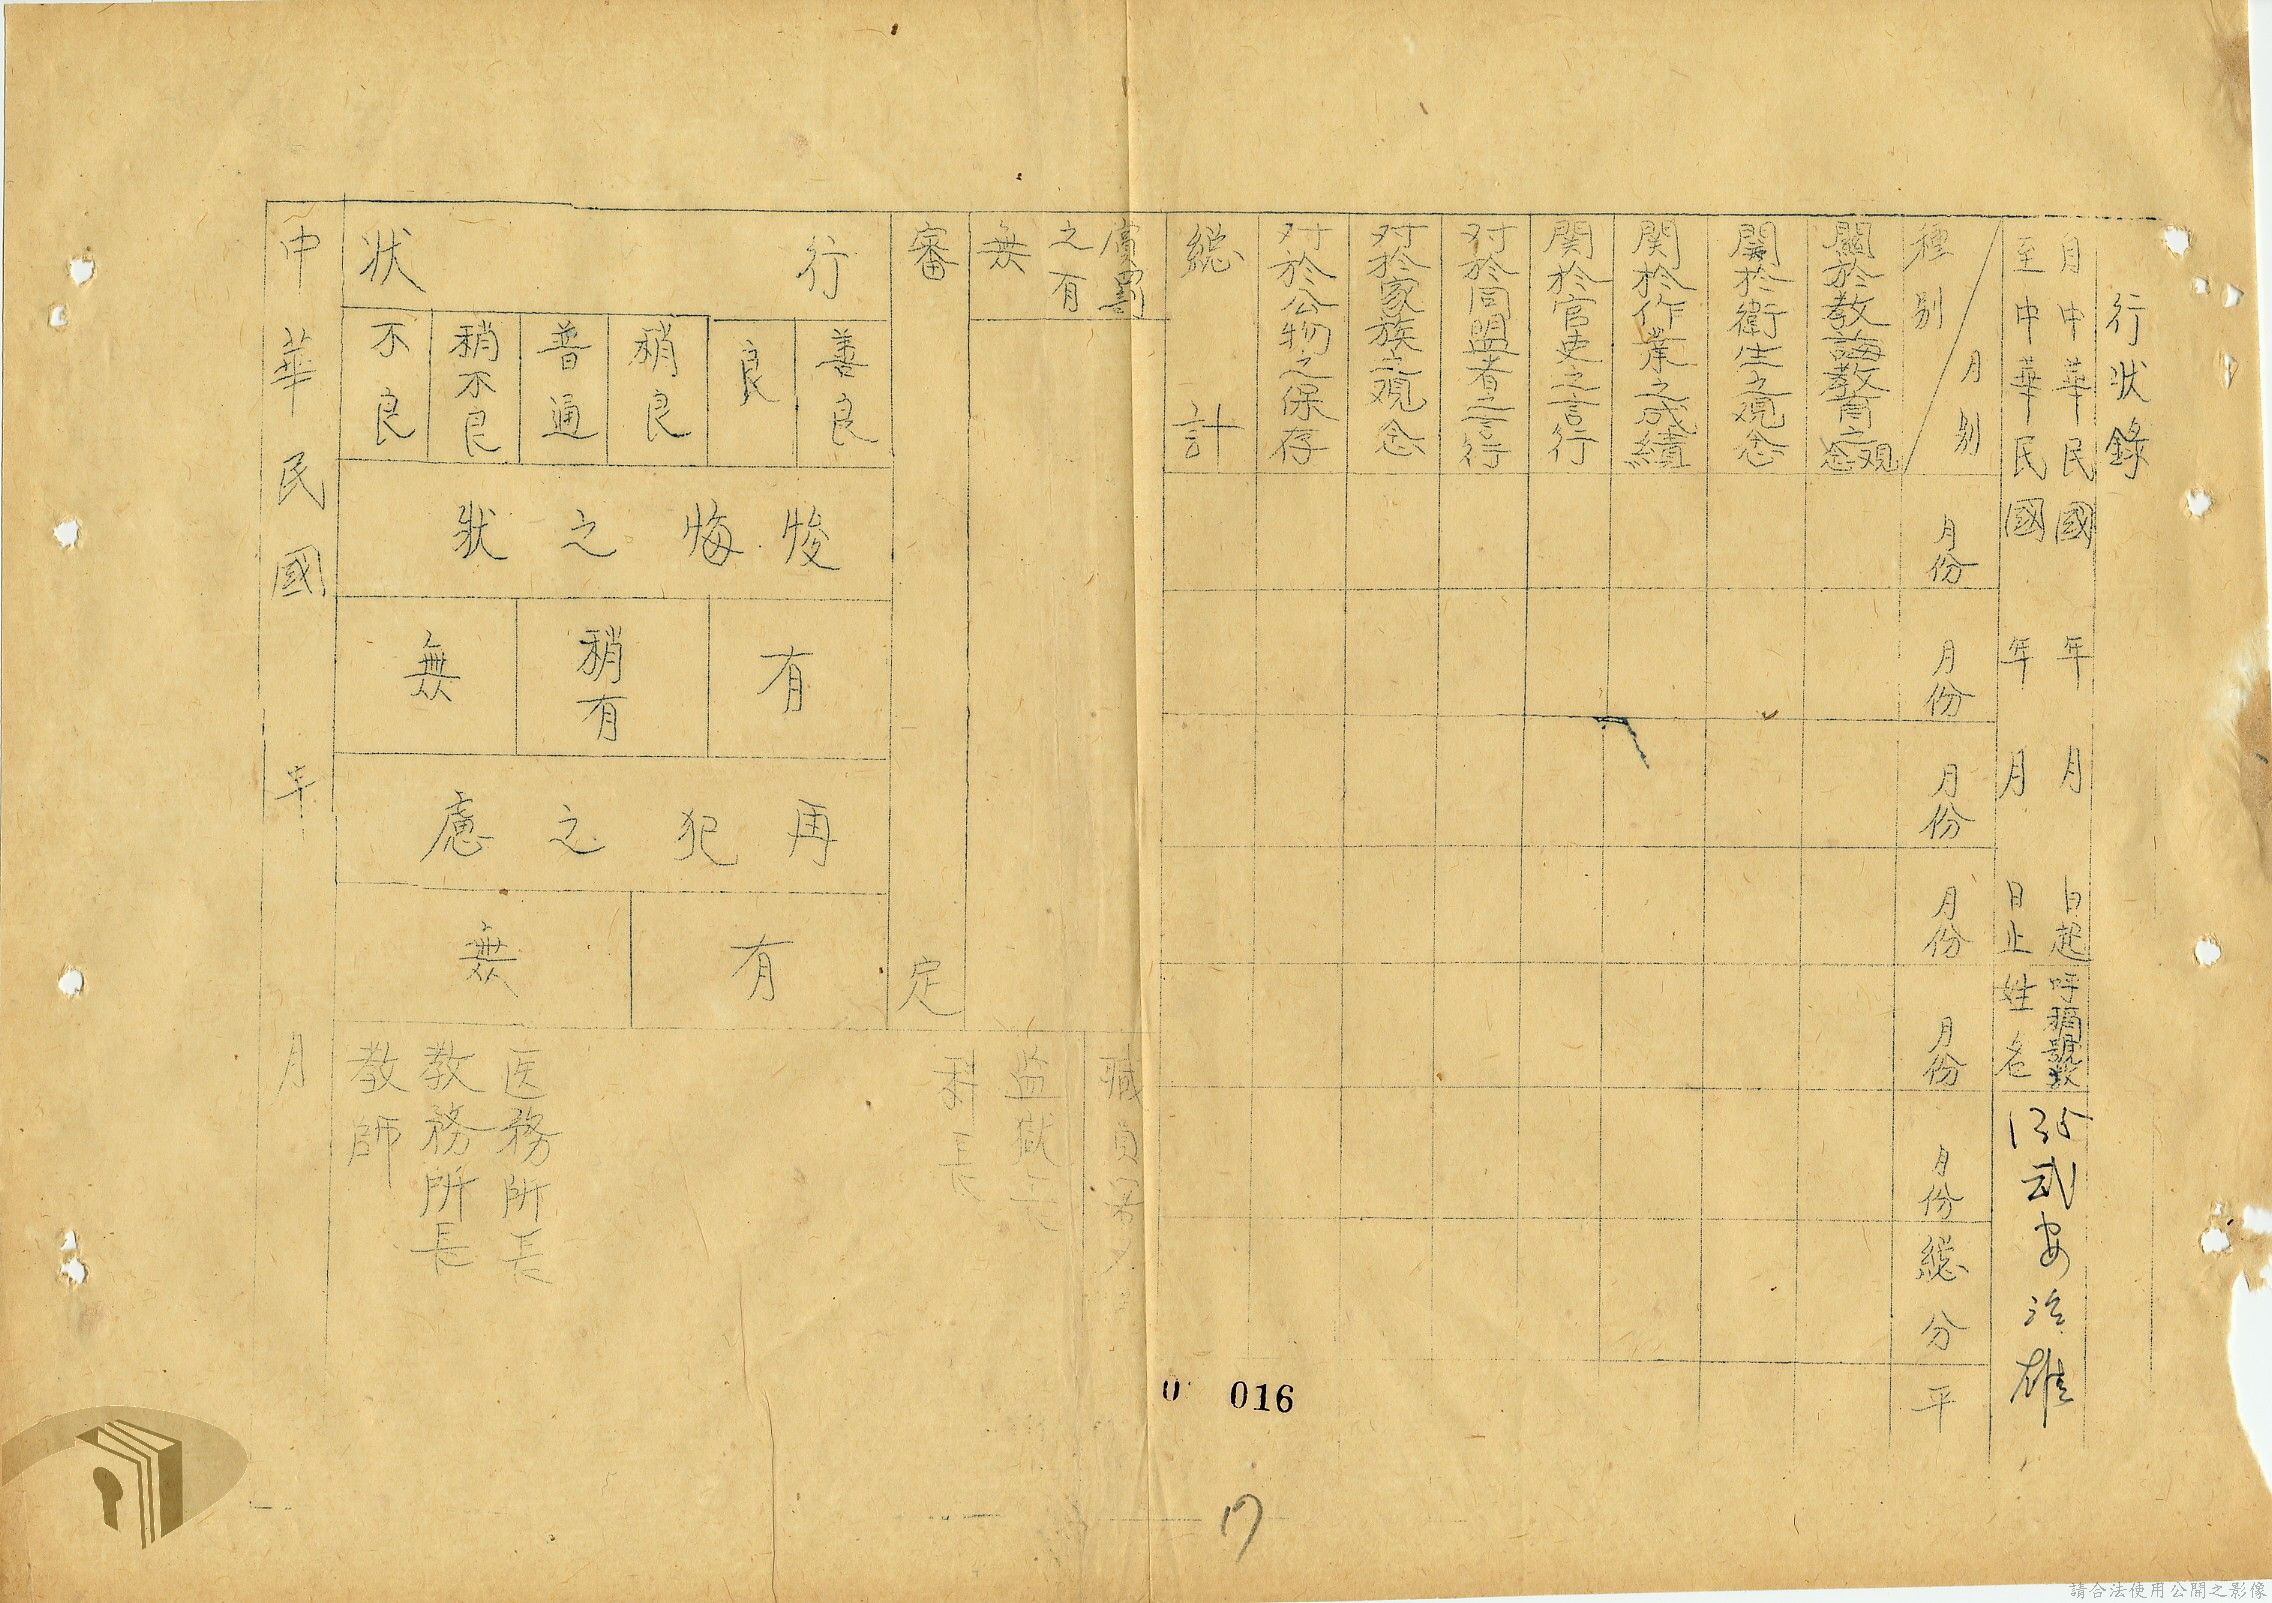 行狀錄
自中華民國 年 月 日起
至中華民國 年 月 日止
呼稱號數
135
姓名
武安治雄
種別
月別
月份
月份
月份
月份
月份
月份
總分
平
關於教誨教育之观念
関於衛生之观念
関於作業之成績
関於官吏之言行
对於同盟者之言行
对於家族之观念
对於公物之保存
總計
賞罰
之有
無
審定
行狀
善良
良
稍良
普通
稍不良
不良
悛悔之狀
有
稍有
無
再犯之慮
有
無
職員
监獄長
科長
医務所長
教務所長
教師
中華民國 年 月
016
17
請合法使用公開之影像